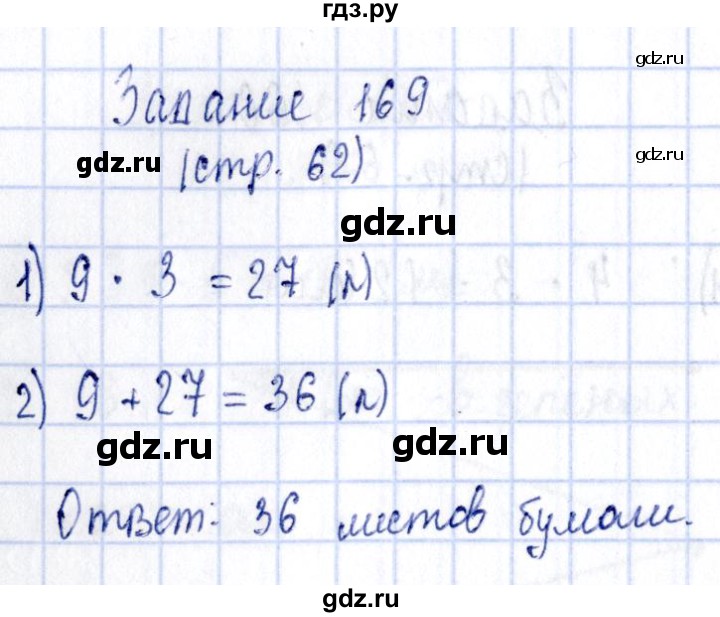 гдз.ру
gdz.ru
Задание 169
gdz.ru
gdz.ru
(стр. 62)
gdz.ru
1) 9 · 3 = 27 (л)
2) 9 + 27 = 36 (л)
gdz.ru
gdz.ru
Ответ: 36 листов бумаги.
gdz.ru